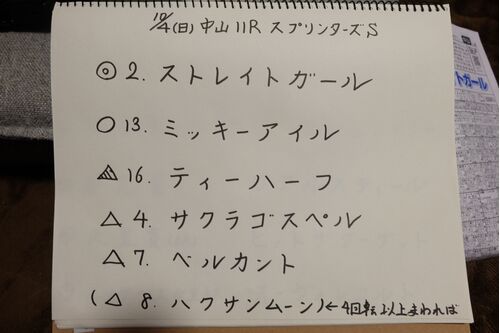 10/4(日) 中山 11R スプリンターズS
◎ 2. ストレイトガール
○ 13. ミッキーアイル
▲ 16. ティーハーフ
△ 4. サクラゴスペル
△ 7. ベルカント
(△ 8. ハクサンムーン)←4回転以上まわれば
トガール